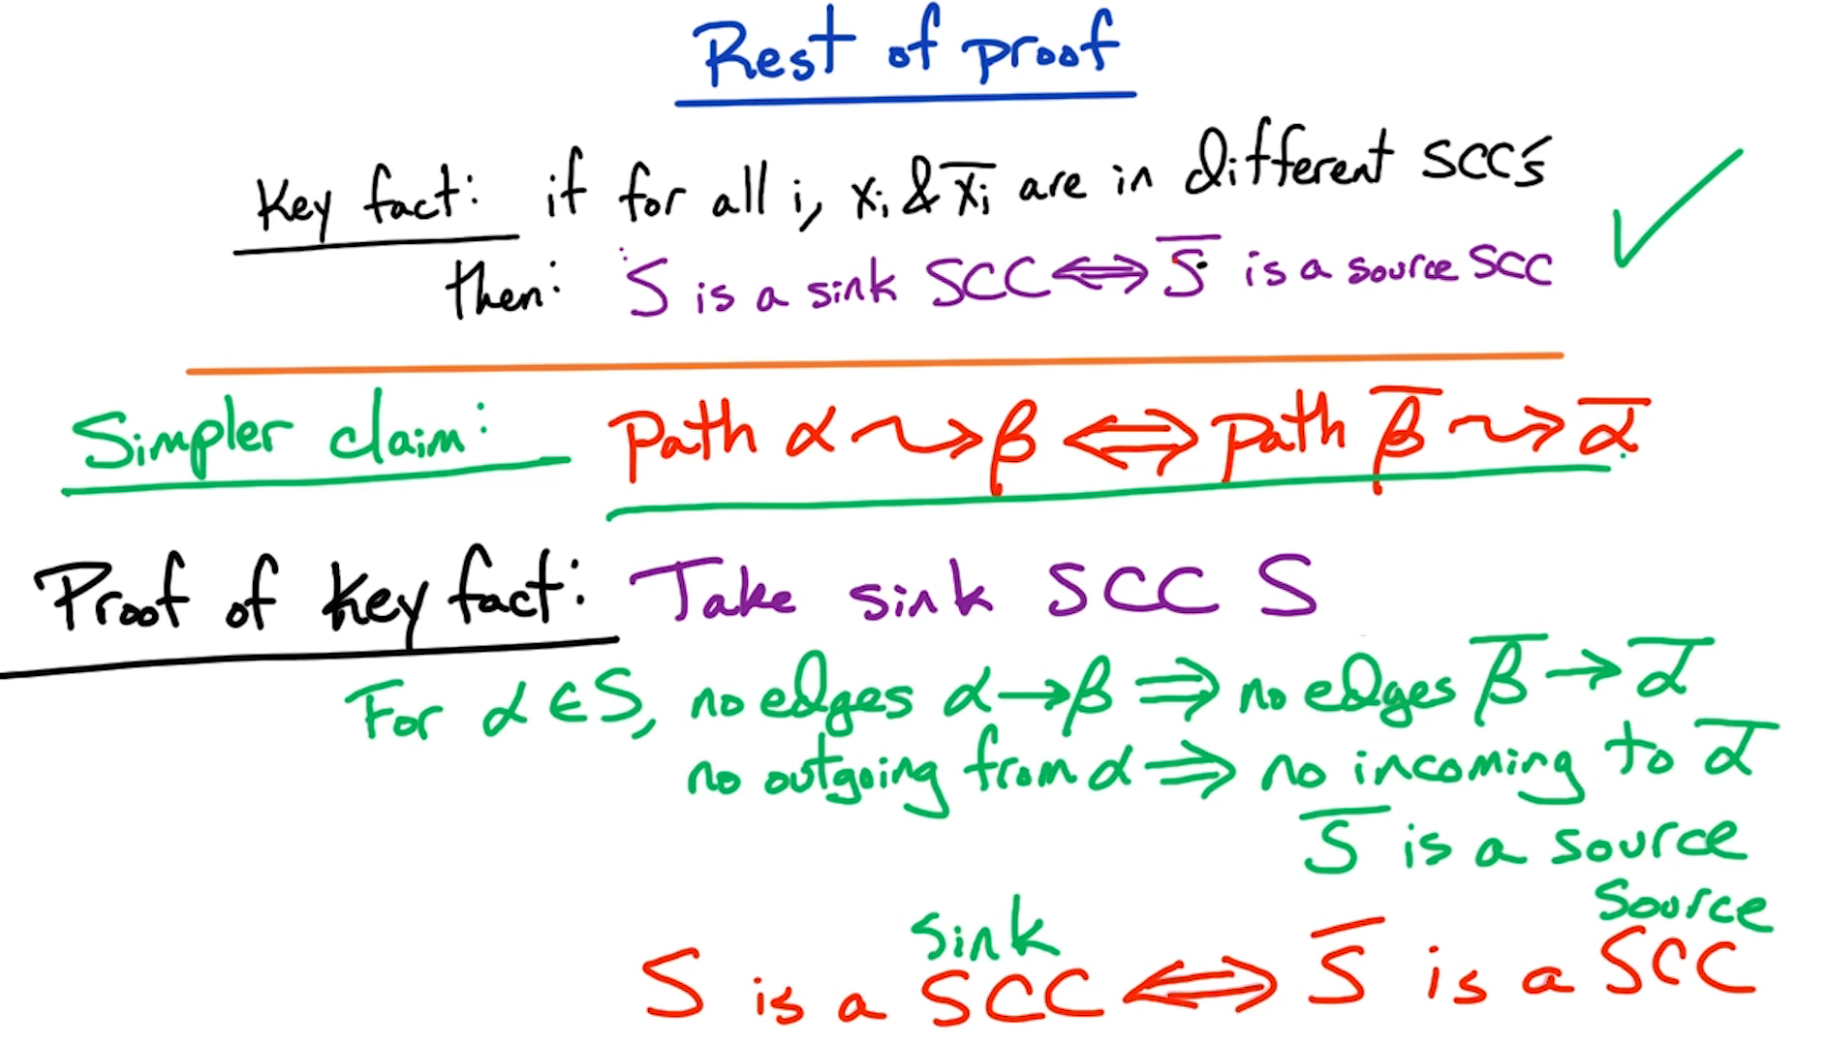 Rest of proof
Key fact: if for all i, xᵢ & x̅ᵢ are in different SCC's
then: S is a sink SCC ⟺ S̅ is a source SCC ✓
Simpler claim: Path α ⇝ β ⟺ path β̅ ⇝ α̅
Proof of Key fact: Take sink SCC S
For α ∈ S, no edges α → β ⟹ no edges β̅ → α̅
no outgoing from α ⟹ no incoming to α̅
S̅ is a source
sink source
S is a SCC ⟺ S̅ is a SCC